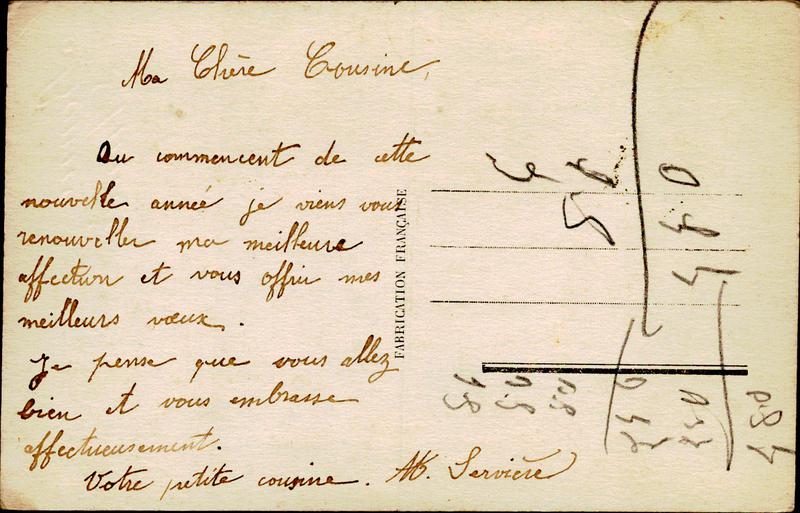 Ma Chère Cousine,
Au commencent de cette
nouvelle année je viens vous
renouveller ma meilleure
affection et vous offrir mes
meilleurs vœux.
Je pense que vous allez
bien et vous embrasse
affectueusement.
Votre petite cousine. Servière
FABRICATION FRANÇAISE